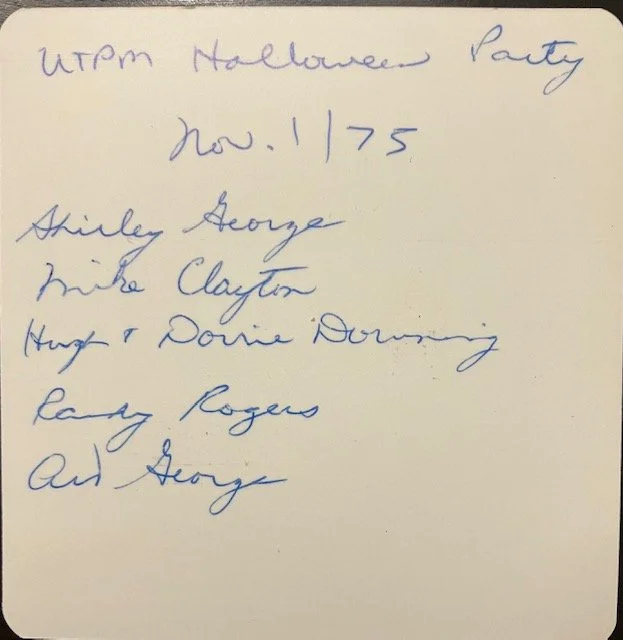 UTPM Halloween Party
Nov. 1/75
Shirley George
Mike Clayton
Hugh & Dorrie Downing
Randy Rogers
George